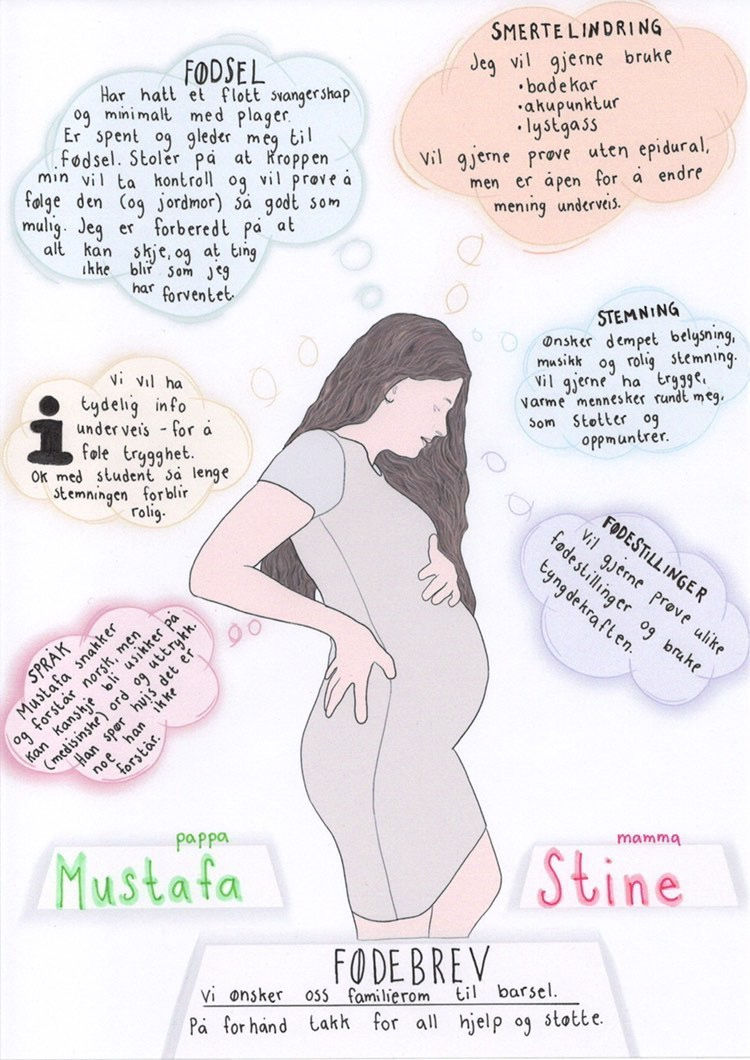 FØDSEL
Har hatt et flott svangerskap
og minimalt med plager.
Er spent og gleder meg til
fødsel. Stoler på at kroppen
min vil ta kontroll og vil prøve å
følge den (og jordmor) så godt som
mulig. Jeg er forberedt på at
alt kan skje, og at ting
ikke blir som jeg
har forventet.
SMERTELINDRING
Jeg vil gjerne bruke
•badekar
•akupunktur
•lystgass
Vil gjerne prøve uten epidural,
men er åpen for å endre
mening underveis.
STEMNING
Ønsker dempet belysning,
musikk og rolig stemning.
Vil gjerne ha trygge,
varme mennesker rundt meg,
som støtter og
oppmuntrer.
i
Vi vil ha
tydelig info
underveis - for å
føle trygghet.
OK med student så lenge
stemningen forblir
rolig.
FØDESTILLINGER
Vil gjerne prøve ulike
fødestillinger og bruke
tyngdekraften.
SPRÅK
Mustafa snakker
og forstår norsk, men
kan kanskje bli usikker på
(medisinske) ord og uttrykk.
Han spør hvis det er
noe han ikke
forstår.
pappa
Mustafa
mamma
Stine
FØDEBREV
Vi ønsker oss familierom til barsel.
På forhånd takk for all hjelp og støtte.